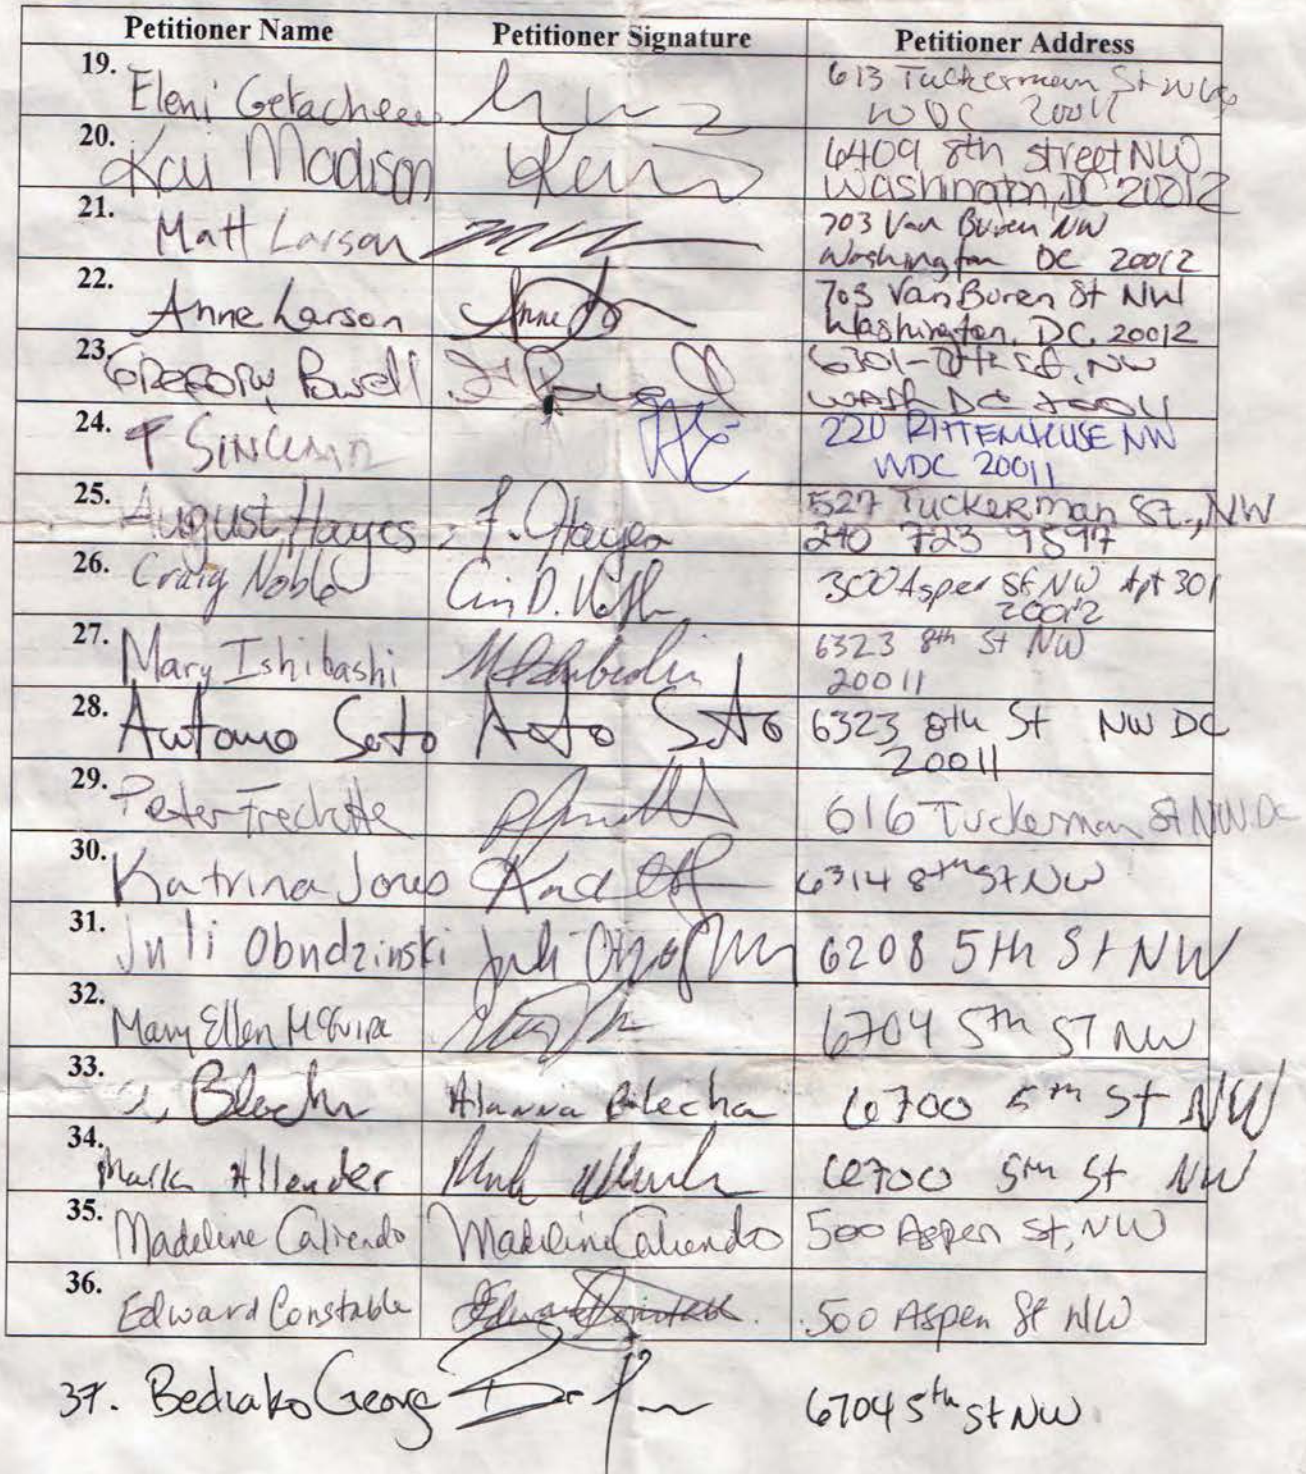 Petitioner Name Petitioner Signature Petitioner Address
19. Eleni Getachew 613 Tuckerman St NW
WDC 20011
20. Kai Madison Kai 6409 8th street NW
Washington, DC 20012
21. Matt Larson 703 Van Buren NW
Washington DC 20012
22. Anne Larson Anne 703 Van Buren St NW
Washington, DC 20012
23. Gregory Powell 6301-8th St, NW
Wash DC 20011
24. T Sinclair 220 RITTENHOUSE NW
WDC 20011
25. August Hayes, F. Hayes 527 Tuckerman St., NW
240 723 9597
26. Craig Noble 300 Aspen St NW Apt 301
20012
27. Mary Ishibashi M Ishibashi 6323 8th St NW
20011
28. Antonio Soto Anto Soto 6323 8th St NW DC
20011
29. Peter Frechette 616 Tuckerman St NW DC
30. Katrina Jones 6314 8th St NW
31. Juli Obudzinski Juli 6208 5th St NW
32. Mary Ellen McGuire 6704 5th ST NW
33. Blecha Alanna Blecha 6700 5th St NW
34. Mark Allender Mark 6700 5th St NW
35. Madeline Caliendo Madeline Caliendo 500 Aspen St, NW
36. Edward Constable Edward Constable 500 Aspen St NW
37. Bediako George 6704 5th St NW